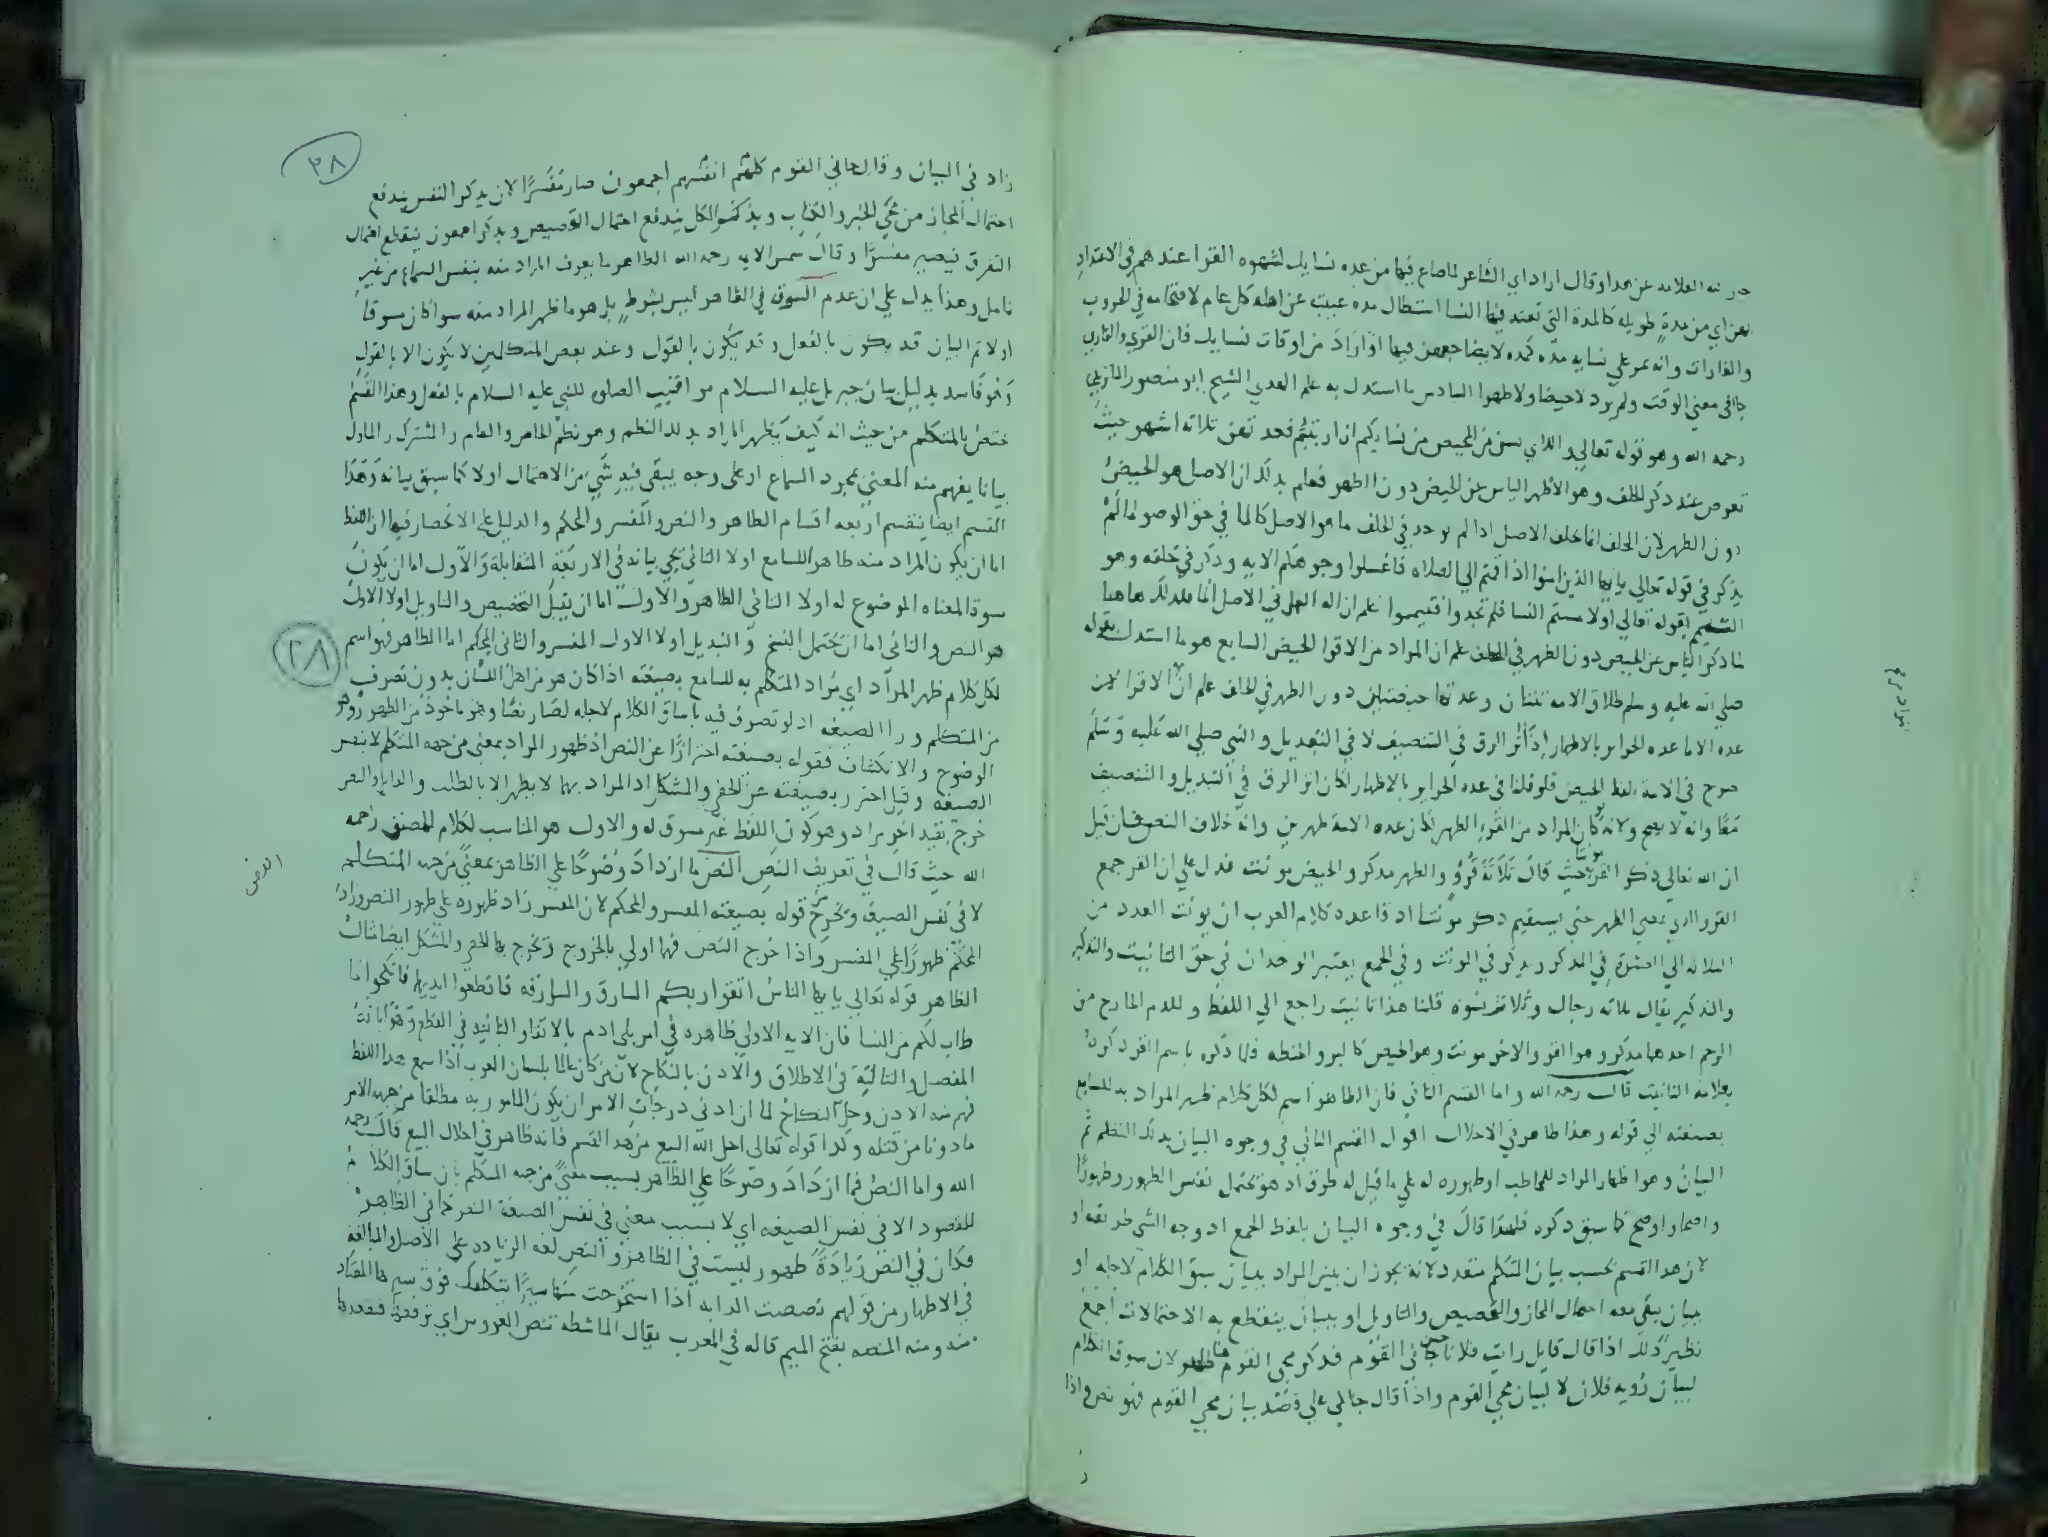 العلامه عن هذا وقال اراد اي الشاعر لما ضاع فيها من عده نسايك لشهره القرا عندهم في الاعتداد
بهن اي من مدة طويله كالمدة التي تعتد فيها النسا استطال مده غيبته عن اهله كل عام لاقتحامه في الحروب
والغارات وانه تمر علي نسايه مده كمده لا يضاجعهن فيها او اراد من اوقات نسايك فان القري والقاري
جاا في معني الوقت ولم يرد لا حيضا ولا طهرا السادس ما استدل به علم الهدي الشيخ ابو منصور الماتريدي
رحمه الله وهو قوله تعالي واللاي يسن من المحيض من نسايكم ان ارتبتم فعدتهن ثلاثه اشهر حيث
تعرض عند ذكر الخلف وهو الاظهر الياس عن الحيض دون الطهر فعلم بذلك ان الاصل هو الحيض
دون الطهر لان الخلف انما خلف الاصل اذا لم يوجد في الخلف ما هو الاصل كالما في حق الوضو لما لم
يذكر في قوله تعالي يا ايها الذين امنوا اذا قمتم الي الصلاه فاغسلوا وجوهكم الايه وذكر في خلفه وهو
التيمم بقوله تعالي اولامستم النسا فلم تجدوا فتيمموا علم ان اله العمل في الاصل الما فكذلك هاهنا
لما ذكر الياس عن المحيض دون الطهر في الخلف علم ان المراد من الاقرا الحيض السابع هو ما استدل بقوله
صلي الله عليه وسلم طلاق الامه ثنتان وعدتها حيضتان دون الطهر في الخلف علم ان الاقرا لان
عده الاما عده الحراير بالاطهار اذ اثر الرق في التنصيف لا في التبديل والنبي صلي الله عليه وسلم
صرح في الامة بلفظ الحيض فلو قلنا في عده الحراير بالاطهار لكان اثر الرق في التبديل والتنصيف
معا وانه لا يصح ولانه لو كان المراد من القرء الطهر لكان عده الامة طهرين وانه خلاف النص فان قيل
ان الله تعالي ذكر القرء مونثا حيث قال ثلاثة قروء والطهر مذكر والحيض مونث فدل علي ان القر جمع
القرو الذي بمعني الطهر حتي يستقيم ذكر مونثا اذ قاعده كلام العرب ان يونث العدد من
الثلاثه الي العشرة في المذكر ويذكر في المونث وفي الجمع يعتبر الوحدان في حق التانيث والتذكير
والتذكير يقال ثلاثه رجال وثلاث نسوه قلنا هذا تانيث راجع الي اللفظ وللدم الخارج من
الرحم احدهما مذكر وهو القرو والاخر مونث وهو الحيض كالبر والحنطه فلما ذكره باسم القرو ذكره
بعلامه التانيث قال رحمه الله واما القسم الثاني فان الظاهر اسم لكل كلام ظهر المراد به للسامع
بصيغته الي قوله وهذا ظاهر في الاحلال اقول القسم الثاني في وجوه البيان بذلك النظم ثم
البيان وهو اظهار المراد للمخاطب او ظهوره له علي ما قيل له طرق اذ هو يحتمل نفس الظهور وظهورا
واضحا واوضح كما سبق ذكره فلهذا قال في وجوه البيان بلفظ الجمع اذ وجه الشي طريقه او
لان هذا القسم بحسب بيان المتكلم متعدد لانه يجوز ان يبين المراد ببيان سيق الكلام لاجله او
ببيان يبقي معه احتمال المجاز والتخصيص والتاويل او ببيان ينقطع به الاحتمالات اجمع
نظير ذلك اذا قال قايل رايت فلانا حين جاني القوم فذكر مجي القوم ظاهر لان سوق الكلام
لبيان رويه فلان لا لبيان مجي القوم واذا قال جالي علي قصد بيان مجي القوم فهو نص واذا
ز
٢٨
زاد في البيان وقال جاني القوم كلهم انفسهم اجمعون صار مفسرا لان بذكر النفس يندفع
احتمال المجاز من مجي الخبر والكتاب وبذكر الكل يندفع احتمال التخصيص وبذكر اجمعون ينقطع احتمال
التفرق فيصير مفسرا وقال شمس الايمه رحمه الله الظاهر ما يعرف المراد منه بنفس السماع من غير
تامل وهذا يدل علي ان عدم السوق في الظاهر ليس بشرط بل هو ما ظهر المراد منه سوا كان مسوقا
او لا ثم البيان قد يكون بالفعل وقد يكون بالقول وعند بعض المتكلمين لا يكون الا بالقول
وهو فاسد بدليل بيان جبريل عليه السلام مواقيت الصلوه للنبي عليه السلام بالفعل وهذا القسم
مختص بالمتكلم من حيث انه كيف يظهر المراد بذلك النظم وهو نظم الخاص والعام والمشترك والماول
بيانا يفهم منه المعني بمجرد السماع او علي وجه يبقي فيه شي من الاحتمال اولا كما سبق بيانه وهذا
القسم ايضا ينقسم اربعه اقسام الظاهر والنص والمفسر والمحكم والدليل علي الانحصار فيها ان اللفظ
اما ان يكون المراد منه ظاهرا للسامع اولا الثاني يجي بيانه في الاربعة المتقابلة والاول اما ان يكون
سوق المعناه الموضوع له اولا الثاني الظاهر والاول اما ان يقبل التخصيص والتاويل اولا الاول
هو النص والثاني اما ان يحتمل النسخ والتبديل اولا الاول المفسر والثاني المحكم اما الظاهر فهو اسم
لكل كلام ظهر المراد اي مراد المتكلم به للسامع بصيغته اذا كان هو من اهل اللسان بدون تصرف
من المتكلم ورا الصيغه اذ لو تصرف فيه بان ساق الكلام لاجله لصار نصا وهو ماخوذ من الظهور وهو
الوضوح والانكشاف فقوله بصيغته احترازا عن النص اذ ظهور المراد بمعني من جهه المتكلم لا بنفس
الصيغه وقيل احترز بصيغته عن الخفي والمشكل اذ المراد بهما لا يظهر الا بالطلب والتامل والنص
خرج بقيد اخر مراد وهو كون اللفظ غير مسوق له والاول هو المناسب لكلام المصنف رحمه
الله حيث قال في تعريف النص النص ما ازداد وضوحا علي الظاهر بمعني من جهه المتكلم
لا في نفس الصيغه ويخرج من قوله بصيغته المفسر والمحكم لان المفسر زاد ظهوره علي ظهور النص وزاد
المحكم ظهورا علي المفسر واذا خرج النص فهما اولي بالخروج ويخرج بها الخفي والمشكل ايضا مثال
الظاهر قوله تعالي يا ايها الناس اتقوا ربكم السارق والسارقه فاقطعوا ايديهما فانكحوا ما
طاب لكم من النسا فان الايه الاولي ظاهره في امر بني ادم بالاتقا والثانيه في القطع
المفصل والثالثة في الاطلاق والاذن بالنكاح لان من كان عالما بلسان العرب اذا سمع هذا اللفظ
فهم منه الاذن وحل النكاح لما ان ادني درجات الامر ان يكون المامور به مطلقا من جهه الامر
ماذونا من قبله وكذا قوله تعالي احل الله البيع من هذا القسم فانه ظاهر في احلال البيع قال رحمه
الله واما النص فما ازداد وضوحا علي الظاهر بسبب معني من جهه المتكلم بان ساق الكلام
للمقصود الا في نفس الصيغه اي لا بسبب معني في نفس الصيغة النص كما في الظاهر
فكان في النص زيادة ظهور ليست في الظاهر والنص لغه الزيادة علي الاصل والمبالغه
في الاظهار من قولهم نصصت الدابه اذا استخرجت منها سيرا بتكلفك فوق سيرها المعتاد
منه ومنه المنصه بفتح الميم قاله في المغرب يقال الماشطه تنص العروس اي ترفعها فتقعدها
٢٨
النص